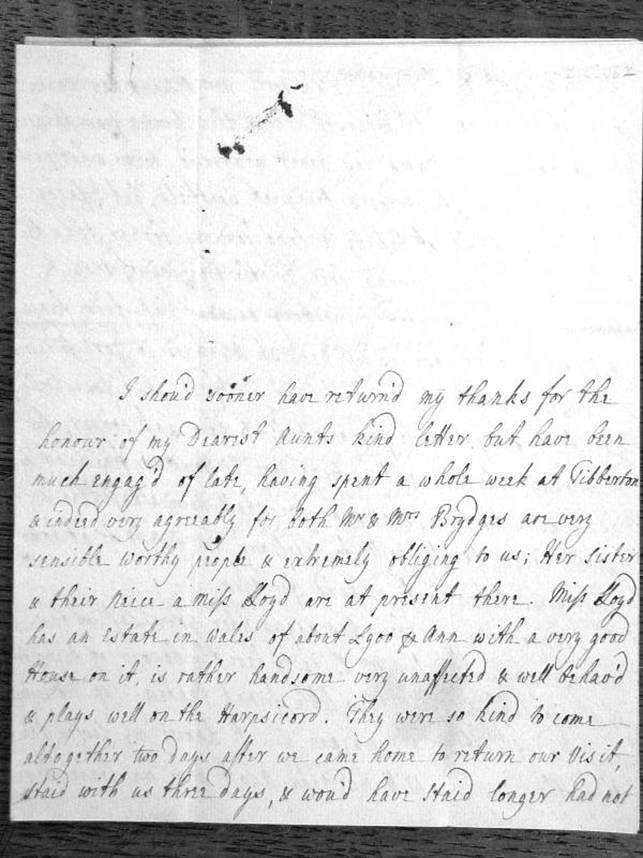 I shou'd sooner have return'd my thanks for the
honour of my Dearest Aunts kind letter but have been
much engag'd of late, having spent a whole week at Tibberton
& indeed very agreeably for both Mr & Mrs Brydges are very
sensible worthy people & extremely obliging to us; Her Sister
& their Neice a Miss Lloyd are at present there. Miss Lloyd
has an Estate in Wales of about £900 p Ann with a very good
House on it, is rather handsome very unaffected & well behav'd
& plays well on the Harpsicord. They were so kind to come
altogether two days after we came home to return our Visit,
staid with us three days, & wou'd have staid longer had not